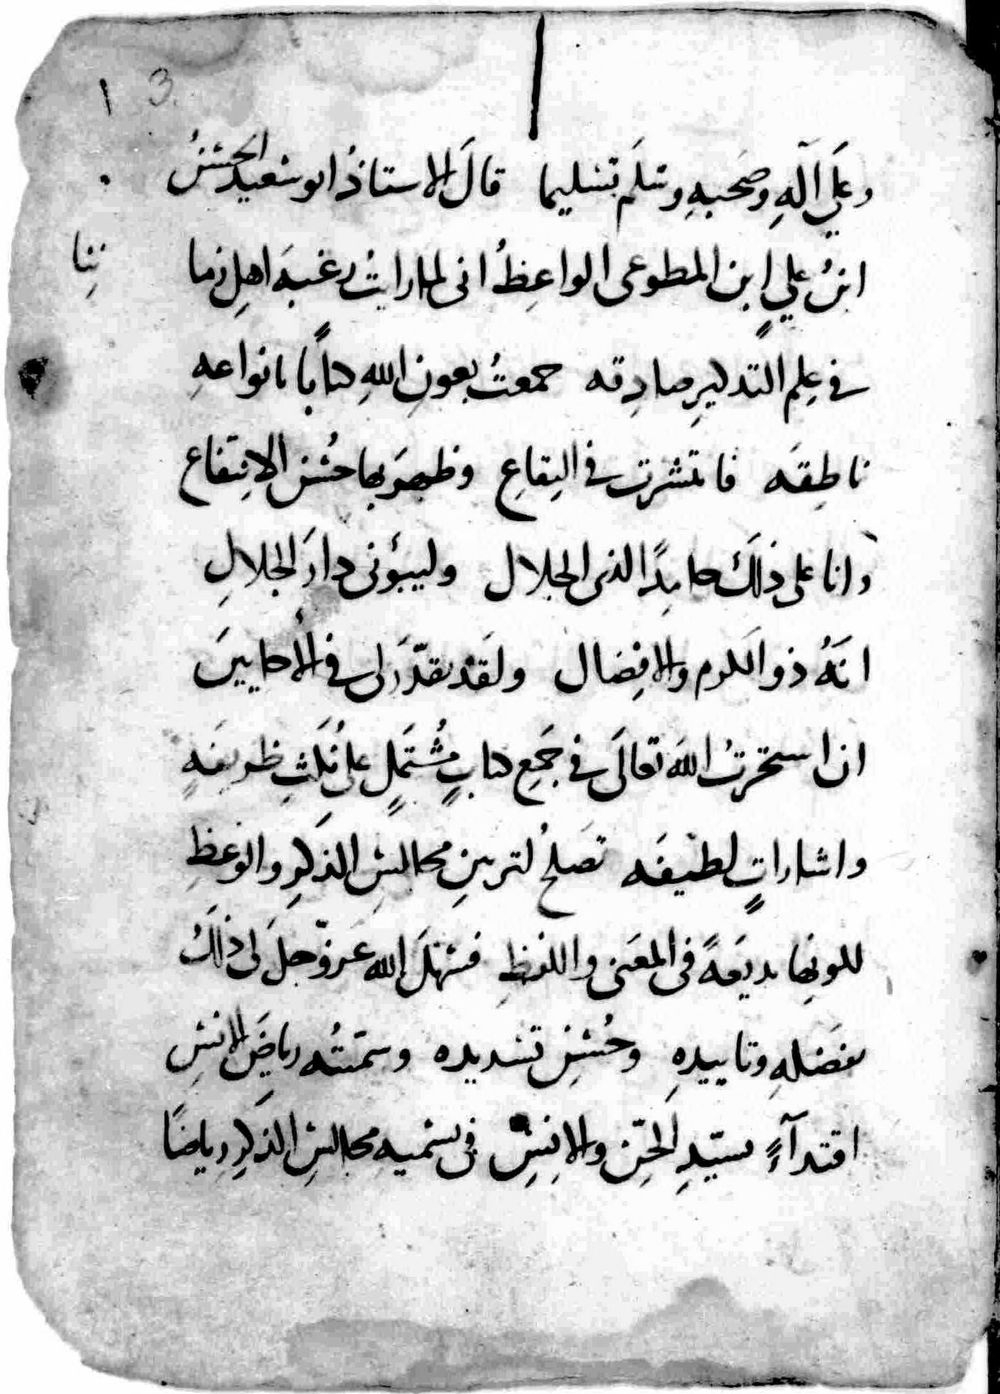 ١ 3
وعَلَى آلهِ وصَحبهِ وسَلَّم تسليما قالَ الاستاذُ ابو سَعيد الحَسَنُ
ابنُ عليٍ ابن المطوعى الواعِظُ انى لما رايتُ رغبَةَ اهلِ زما
نِنا
فى عِلم التذكيرِ صادِقه جمعتُ بعونِ اللهِ كتابًا بانواعهِ
ناطِقَه فانتشرت فى البِقاعِ وظهَر بها حُسْن الانتِفاع
وانا على ذلكَ حامدًا لذى الجلال وليبؤنى دارَ الجلالِ
انّهُ ذو الكرم والافِضال ولقد تقدّرَ لى فى الأحايين
ان استخرتُ اللهَ تعالَى فى جَمعِ كتابٍ مُشتَمِلٍ على نُكَتٍ ظريفةٍ
واشاراتٍ لطيفَه تصَلحُ لتزيينِ مجالسِ الذكرِ والوَعظِ
لكونِها بديعَةً فى المعَنى واللفظِ فسَهَّلَ الله عَزَّ وجلَّ لى ذلكَ
بفضلهِ وتاييدهِ وحُسْنِ تسديده وسمّيتُه رياضَ الانسِ
اقتدآءً بسيّدِ الجنِّ والانِسِ فى تسميه مجالسِ الذكرِ رياضًا